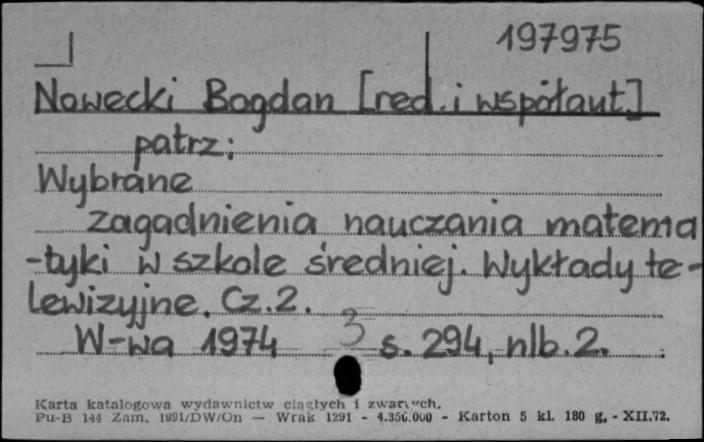 197975
Nowecki Bogdan [red. i współaut.]
patrz:
Wybrane
zagadnienia nauczania matema
-tyki w szkole średniej. Wykłady te-
lewizyjne. Cz.2.
W-wa 1974 3 s. 294, nlb. 2.
Karta katalogowa wydawnictw ciągłych i zwartych.
Pu-B 144 Zam. 1991/DW/On — Wrak 1291 - 4.350.000 - Karton 5 kl. 180 g. - XII.72.